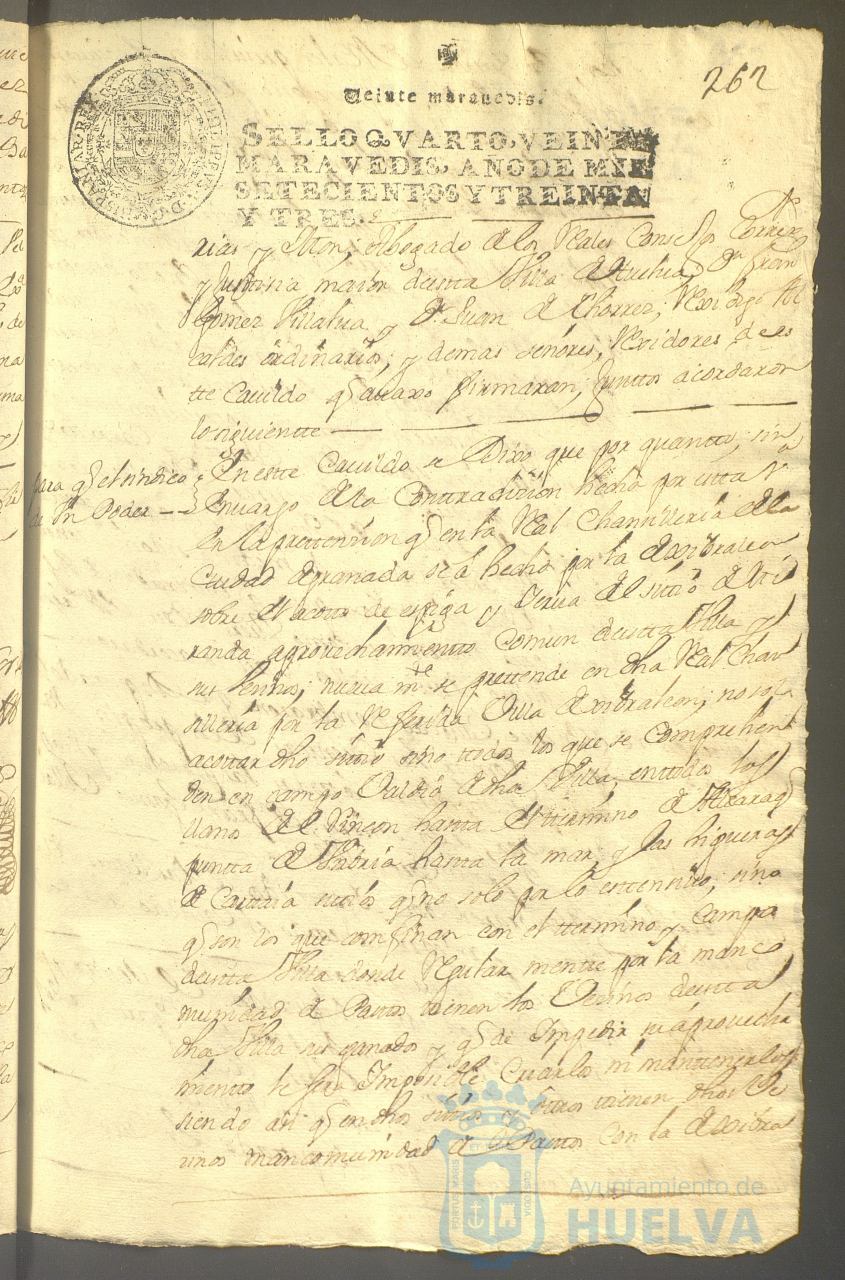 262
Veinte maravedis.
SELLO QVARTO, VEINTE
MARAVEDIS, AÑO DE MIL
SETECIENTOS Y TREINTA
Y TRES.
rias y Abogado de los Reales Consejos Correxr
y Justizia maior de esta Villa de Huelva, Dn Fran
Gomez Villalua y Dn Juan de Chorrez, Al
caldes ordinarios, y demas señores, Rexidores de es
te Cavildo q avaxo firmaran, Junttos acordaron
lo siguientte
para q el sindico
de Un Poder
En estte Cavildo se Dixo que por quantto, sin
Envargo de la Conttradicion hecha por estta Va
en la prettension q en la Real Chanzilleria de la
Ciudad de granada se à hecho por la de xibraleon
sobre el acotto de espiga y Yerva del sittio de
randa aprovechamientto comun de estta Villa y
sus Vezinos, nueva mte se prettende en dha Real Chan
silleria por la Referida Villa de xibraleon, no solo
acottar dho sittio sino ttodos los que se Comprehen
den en campo Valdio de dha Villa, enttodos los
llanos del Rincon hasta el ttermino de Aljaraq
puntta de Umbria hasta la mar, y las higueras
de sittios q no solo por lo esttensso, sino
q son los que confinan con el ttermino y Campo
de estta Villa donde Regular mentte por la manco
munidad de Pasttos ttienen los Vezinos de estta
dha Villa sus ganados y q de Impedir su aprovecha
mientto le sera Imposible Criarlos ni manttenerlos
siendo asi q en dhos sittios y ottros ttienen dhos Ve
zinos mancomunidad de Pasttos con la de xibra
Ayuntamiento de
HUELVA